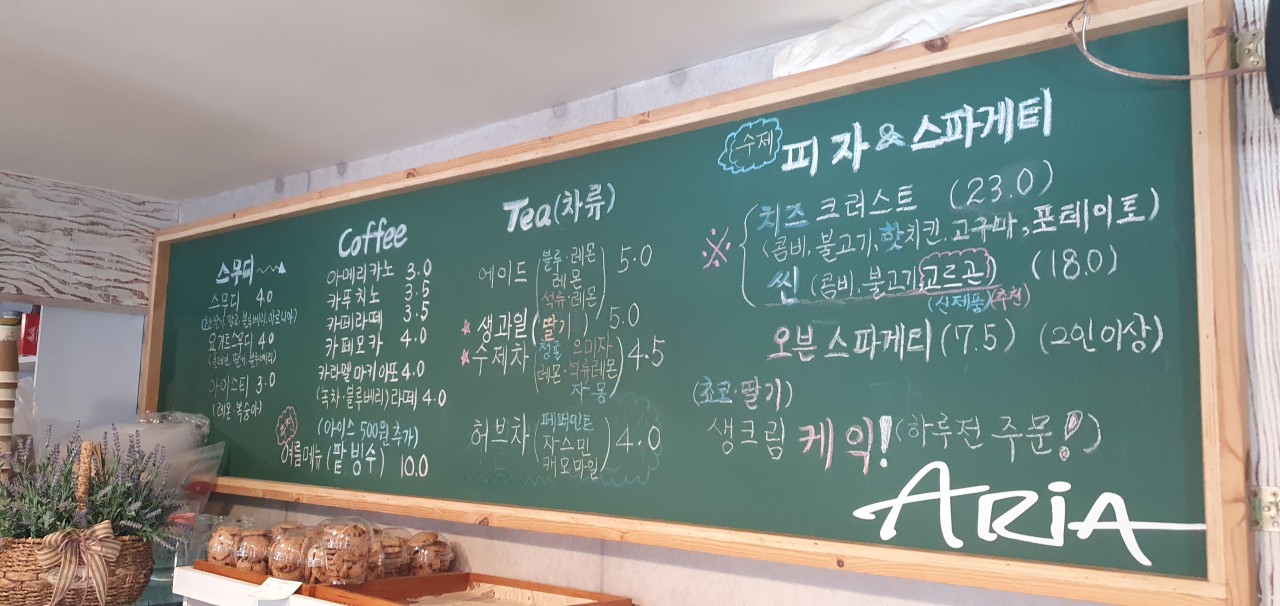 스무디
스무디 4.0
요거트스무디 4.0
아이스티 3.0
(레몬·복숭아)
Coffee
아메리카노 3.0
카푸치노 3.5
카페라떼 3.5
카페모카 4.0
카라멜마키아또 4.0
(녹차·블루베리)라떼 4.0
(아이스 500원 추가)
여름메뉴 (팥빙수) 10.0
Tea(차류)
에이드 (블루·레몬 5.0
레몬
석류·레몬)
★ 생과일 (딸기) 5.0
★ 수제차 (청귤·오미자 4.5
레몬·석류레몬
자몽)
허브차 (페퍼민트 4.0
쟈스민
캐모마일)
수제 피자&스파게티
※ 치즈 크러스트 (23.0)
(콤비,불고기,핫치킨.고구마,포테이토)
씬 (콤비.불고기,고르곤) (18.0)
(신제품)(추천)
오븐 스파게티 (7.5) (2인이상)
(초코·딸기)
생크림 케익! (하루전 주문!)
ARiA